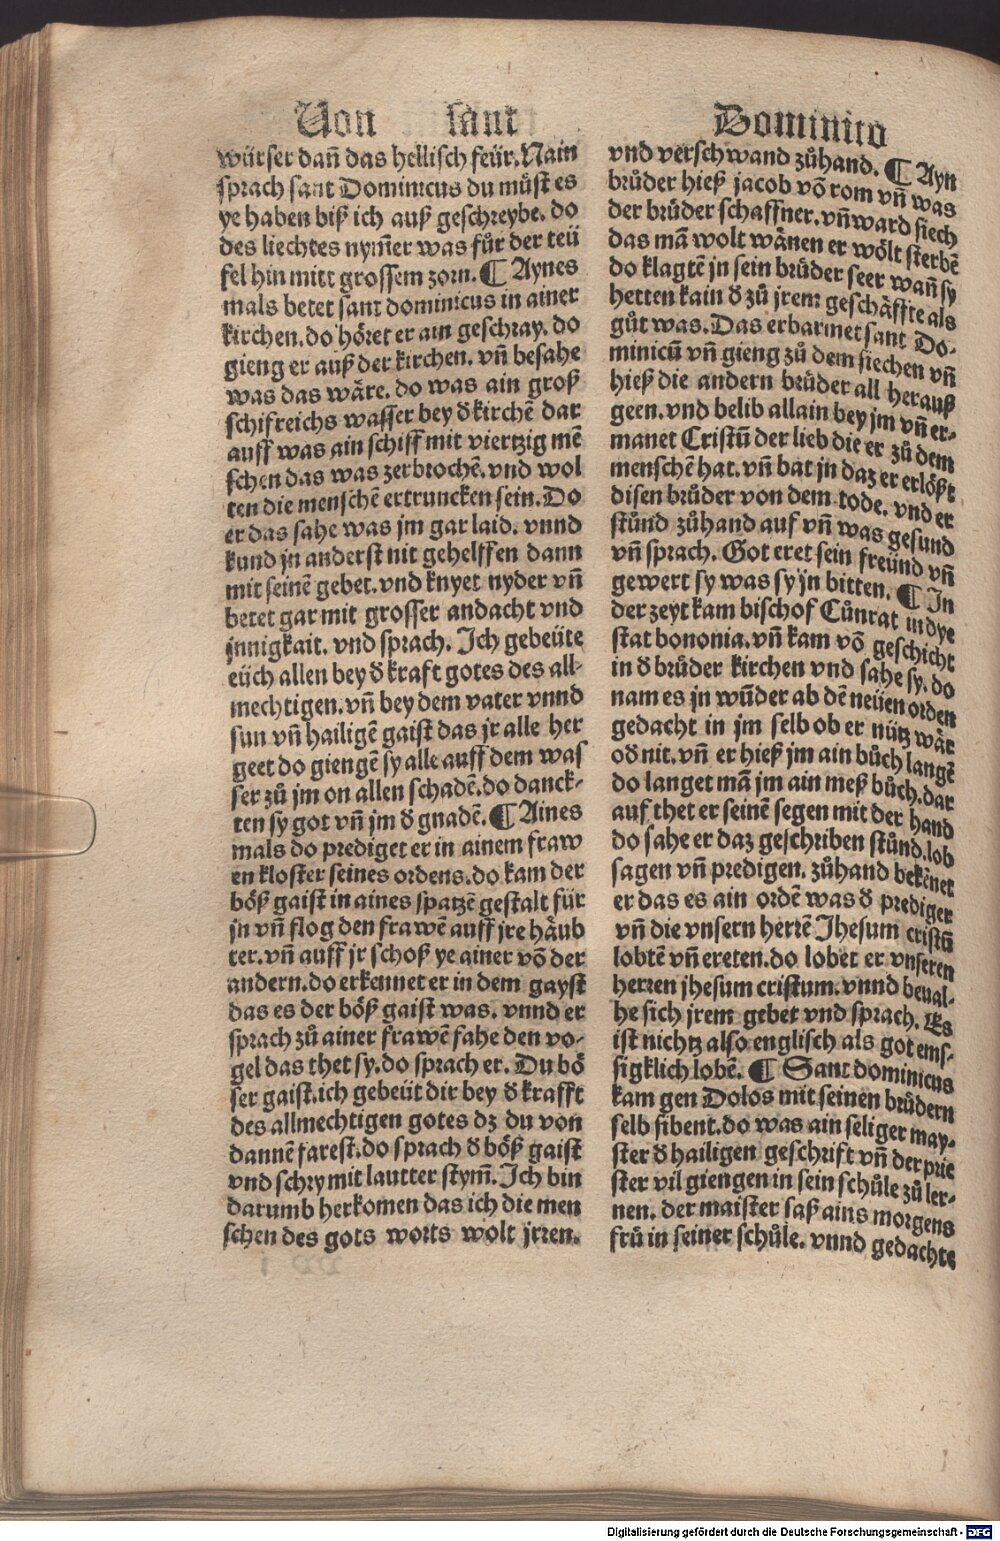 Von sant Dominico
würser dañ das hellisch feür. Nain
sprach sant Dominicus du můst es
ye haben biß ich auß geschreybe. do
des liechtes nym̃er was fůr der teü
fel hin mitt grossem zorn. ¶ Aynes
mals betet sant dominicus in ainer
kirchen. do höret er ain geschray. do
gieng er auß der kirchen. vñ besahe
was das wäre. do was ain groß
schifreichs wasser bey đ kirchē dar
auff was ain schiff mit viertzig mē
schen das was zerbrochē. vnd wol
ten die menschē ertruncken sein. Do
er das sahe was jm gar laid. vnnd
kund jn anderst nit gehelffen dann
mit seinē gebet. vnd knyet nyder vñ
betet gar mit grosser andacht vnd
jnnigkait. vnd sprach. Ich gebeüte
eüch allen bey đ kraft gotes des all-
mechtigen. vñ bey dem vater vnnd
sun vñ hailigē gaist das jr alle her
geet do giengē sy alle auff dem was
ser zů jm on allen schadē. do danck-
ten sy got vñ jm đ gnadē. ¶ Aines
mals do prediget er in ainem fraw
en kloster seines ordens. do kam der
böß gaist in aines spatzē gestalt für
jn vñ flog den frawē auff jre häub
ter. vñ auff jr schoß ye ainer vō der
andern. do erkennet er in dem gayst
das es der böß gaist was. vnnd er
sprach zů ainer frawē fahe den vo-
gel das thet sy. do sprach er. Du bö
ser gaist. ich gebeüt dir bey đ krafft
des allmechtigen gotes dz du von
dannē farest. do sprach đ böß gaist
vnd schry mit lautter stym̃. Ich bin
darumb herkomen das ich die men
schen des gots worts wolt jrren.
vnd verschwand zůhand. ¶ Ayn
brůder hieß jacob vō rom vñ was
der brůder schaffner. vñ ward siech
das mā wolt wänen er wölt sterbē
do klagtē jn sein brůder seer wañ sy
hetten kain đ zů jrem geschäffte als
gůt was. Das erbarmet sant Do-
minicū vñ gieng zů dem siechen vñ
hieß die andern brůder all herauß
geen. vnd belib allain bey jm vñ er-
manet Cristū der lieb die er zů dem
menschē hat. vñ bat jn daz er erlößt
disen brůder von dem tode. vnd er
stůnd zůhand auf vñ was gesund
vñ sprach. Got eret sein freünd vñ
gewert sy was sy jn bitten. ¶ In
der zeyt kam bischof Cůnrat in dye
stat bononia. vñ kam vō geschicht
in đ brůder kirchen vnd sahe sy. do
nam es jn wūder ab dē neüen orden
gedacht in jm selb ob er nütz wär
ođ nit. vñ er hieß jm ain bůch langē
do langet mā jm ain meß bůch. dar
auf thet er seinē segen mit der hand
do sahe er daz geschriben stůnd. lob
sagen vñ predigen. zůhand bekēnet
er das es ain ordē was đ prediger
vñ die vnsern herrē Jhesum cristū
lobtē vñ ereten. do lobet er vnseren
herren jhesum cristum. vnnd beual-
he sich jrem gebet vnd sprach. Es
ist nichtz also englisch als got ems-
sigklich lobē. ¶ Sant dominicus
kam gen Dolos mit seinen brůdern
selb sibent. do was ain seliger may-
ster đ hailigen geschrift vñ der prie
ster vil giengen in sein schůle zů ler-
nen. der maister saß ains morgens
frü in seiner schůle. vnnd gedachte
Digitalisierung gefördert durch die Deutsche Forschungsgemeinschaft - DFG